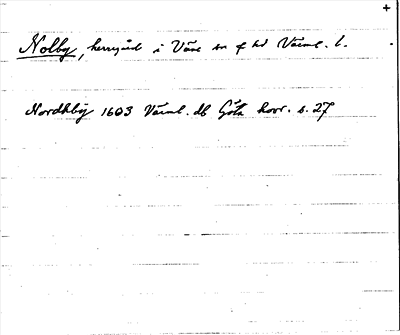 +
Nolby, herrgård i Väse sn o hd Värml. l.
Nordhby 1603 Värml. db Göta hovr. s. 27